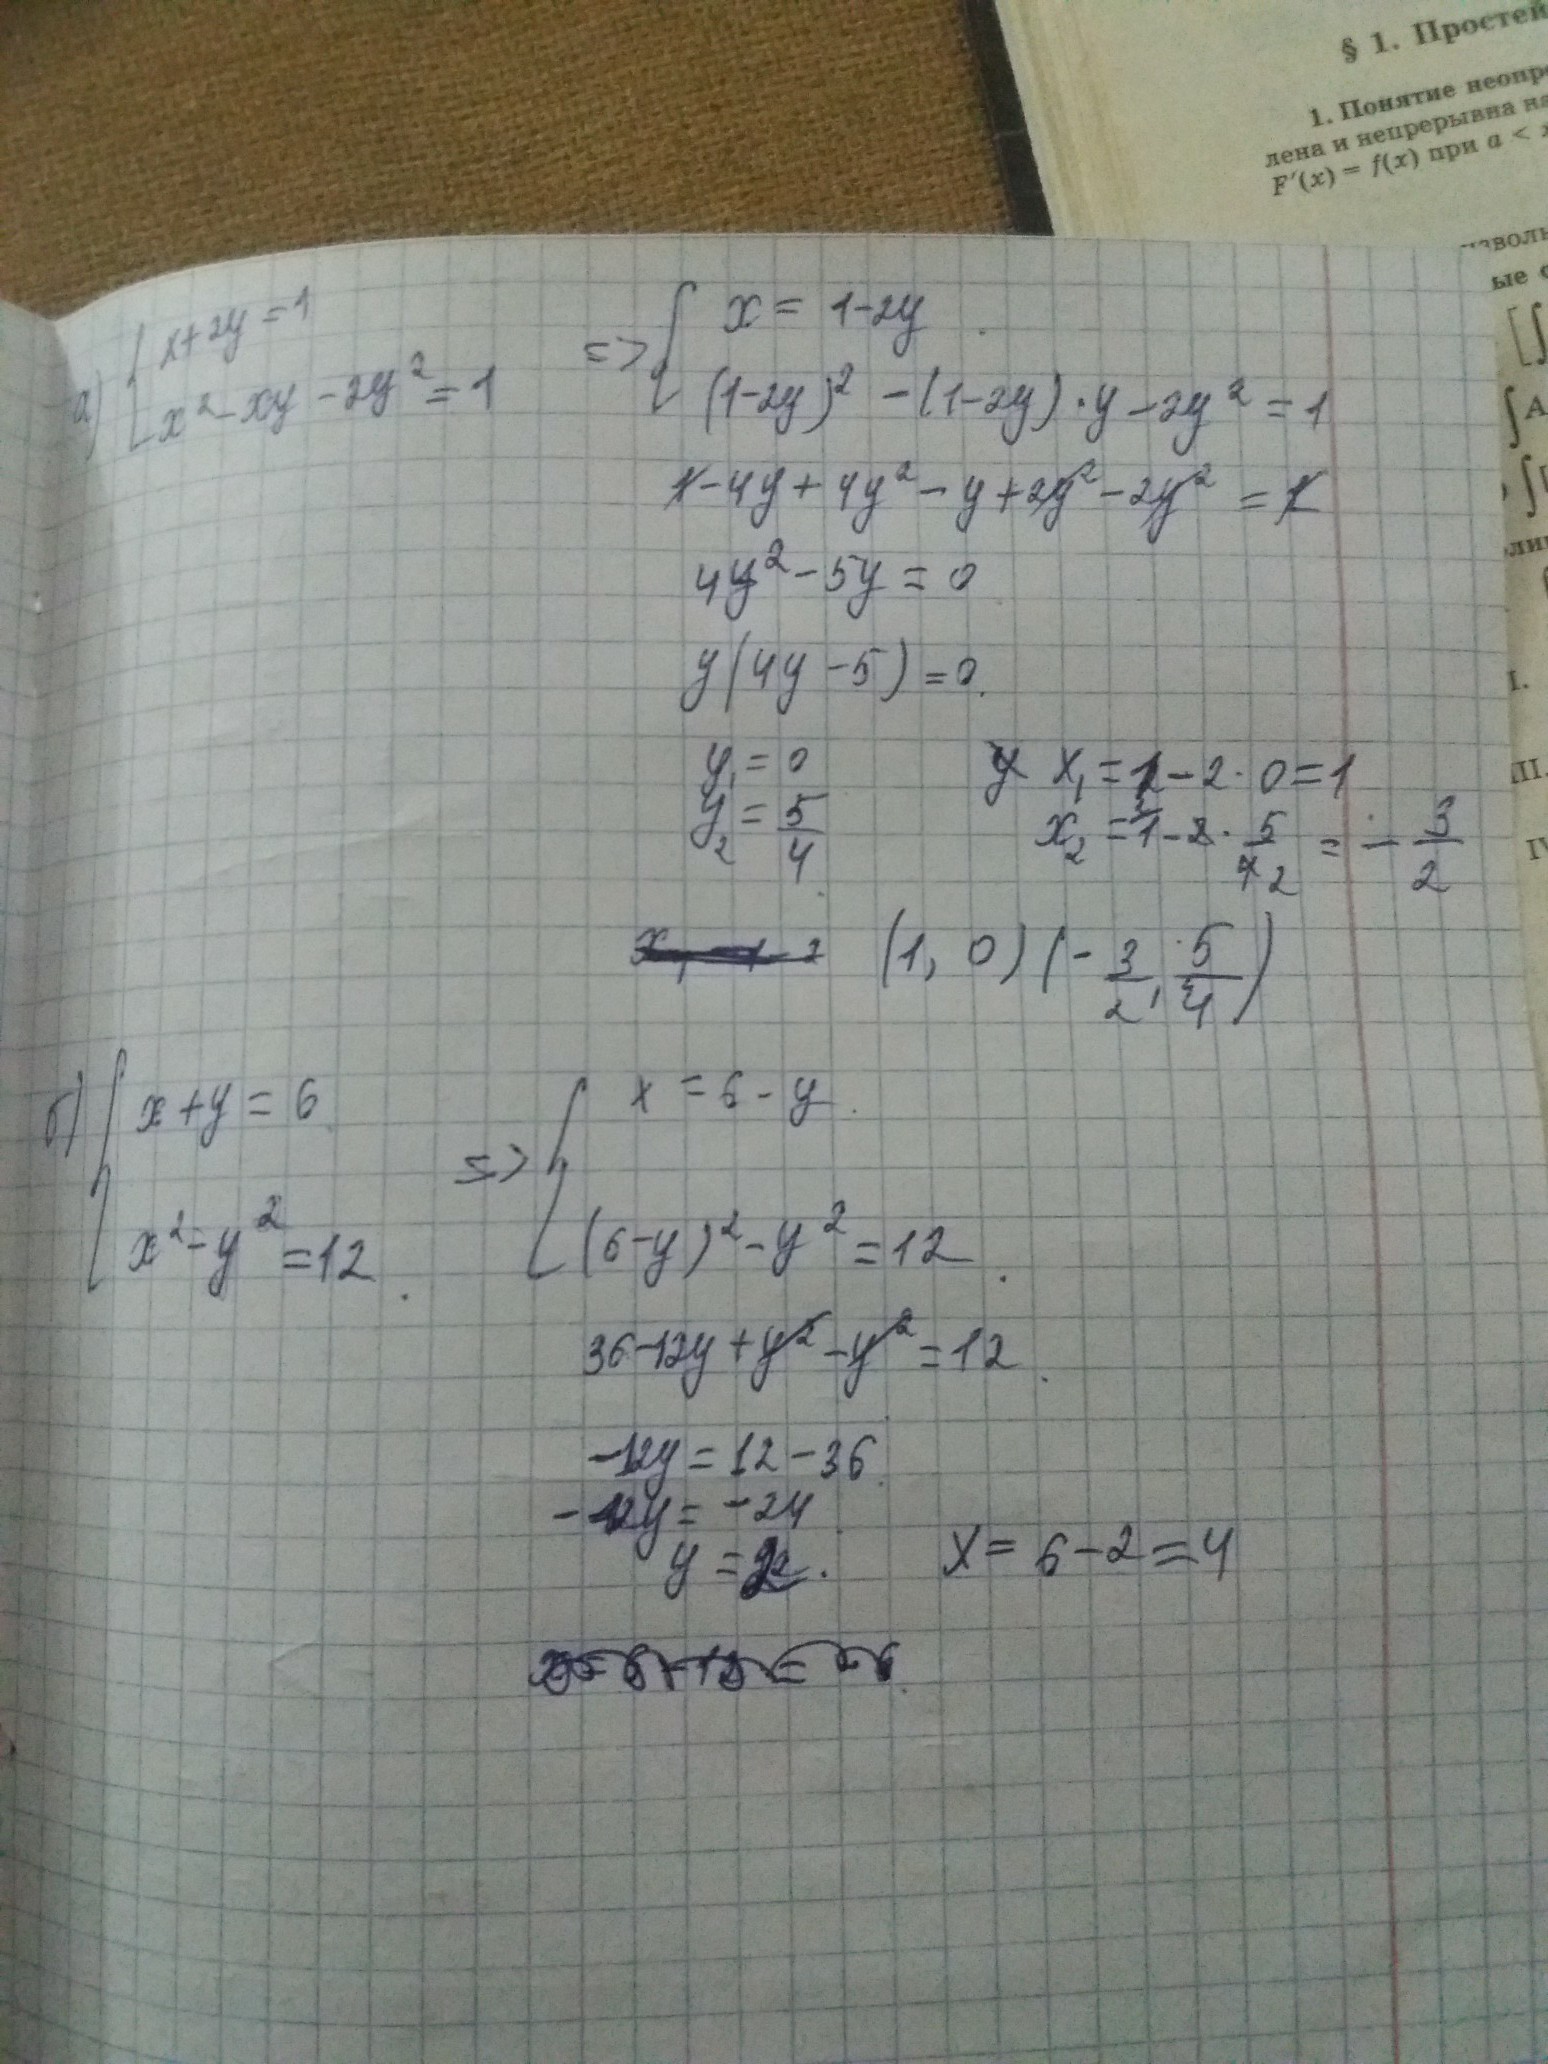 § 1. Простей
1. Понятие неопре
лена и непрерывна на
F′(x) = f(x) при a < x
ые
а) { x+2y=1
x²-xy-2y²=1
=> { x = 1-2y
(1-2y)² -(1-2y)·y-2y²=1
1-4y+4y²-y+2y²-2y² = 1
4y²-5y=0
y(4y-5)=0
y₁=0 x₁=1-2·0=1
y₂=5/4 x₂=1-2·5/4 2 = -3/2
(1, 0) (-3/2, 5/4)
б) { x+y=6
x²-y²=12
=> { x=6-y
(6-y)²-y²=12
36-12y+y²-y²=12
-12y=12-36
-12y=-24
y=2
x=6-2=4